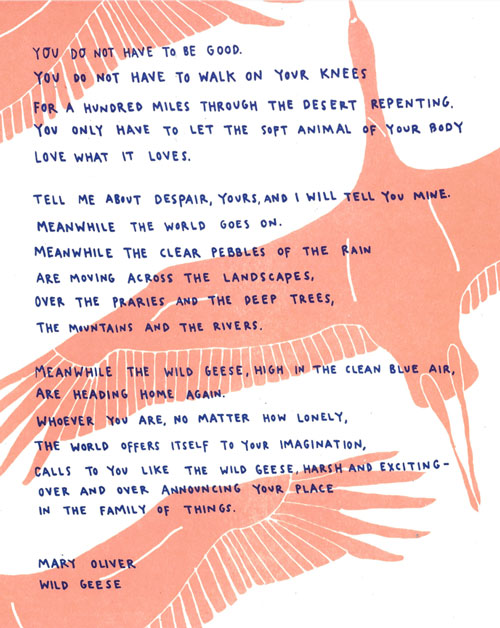 YOU DO NOT HAVE TO BE GOOD.
YOU DO NOT HAVE TO WALK ON YOUR KNEES
FOR A HUNDRED MILES THROUGH THE DESERT REPENTING.
YOU ONLY HAVE TO LET THE SOFT ANIMAL OF YOUR BODY
LOVE WHAT IT LOVES.
TELL ME ABOUT DESPAIR, YOURS, AND I WILL TELL YOU MINE.
MEANWHILE THE WORLD GOES ON.
MEANWHILE THE CLEAR PEBBLES OF THE RAIN
ARE MOVING ACROSS THE LANDSCAPES,
OVER THE PRARIES AND THE DEEP TREES,
THE MOUNTAINS AND THE RIVERS.
MEANWHILE THE WILD GEESE, HIGH IN THE CLEAN BLUE AIR,
ARE HEADING HOME AGAIN.
WHOEVER YOU ARE, NO MATTER HOW LONELY,
THE WORLD OFFERS ITSELF TO YOUR IMAGINATION,
CALLS TO YOU LIKE THE WILD GEESE, HARSH AND EXCITING-
OVER AND OVER ANNOUNCING YOUR PLACE
IN THE FAMILY OF THINGS.
MARY OLIVER
WILD GEESE